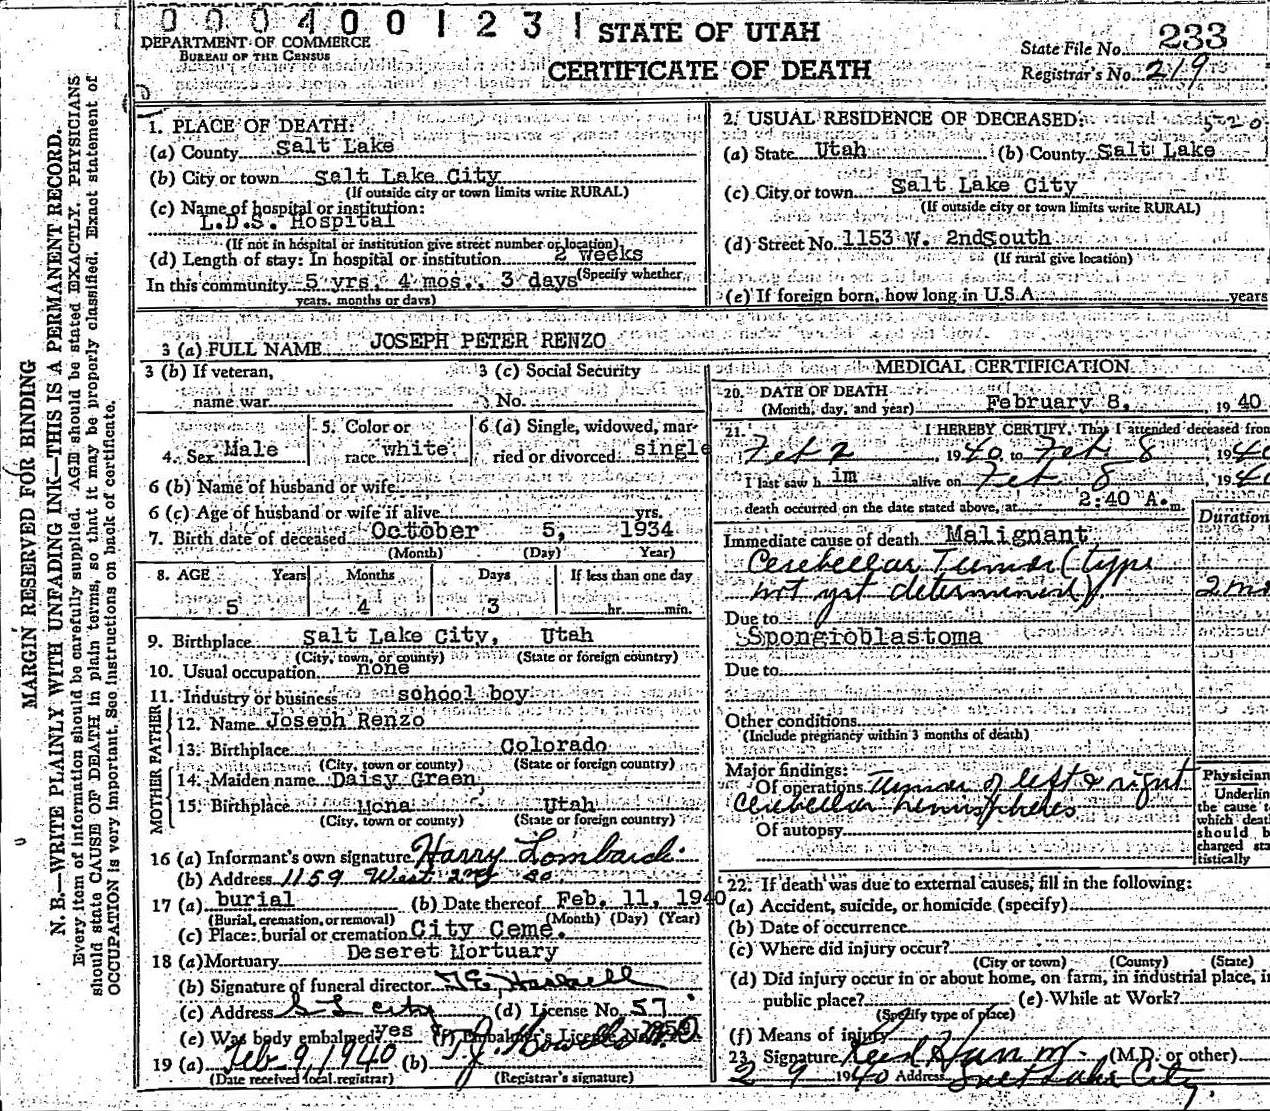 0004001231
STATE OF UTAH
DEPARTMENT OF COMMERCE
BUREAU OF THE CENSUS
CERTIFICATE OF DEATH
State File No. 233
Registrar's No. 219
MARGIN RESERVED FOR BINDING
N. B.—WRITE PLAINLY WITH UNFADING INK—THIS IS A PERMANENT RECORD.
Every item of information should be carefully supplied. AGE should be stated EXACTLY. PHYSICIANS
should state CAUSE OF DEATH in plain terms, so that it may be properly classified. Exact statement of
OCCUPATION is very important. See instructions on back of certificate.
1. PLACE OF DEATH:
(a) County Salt Lake
(b) City or town Salt Lake City
(If outside city or town limits write RURAL)
(c) Name of hospital or institution:
L.D.S. Hospital
(If not in hospital or institution give street number or location)
(d) Length of stay: In hospital or institution 2 weeks
(Specify whether
In this community 5 yrs. 4 mos., 3 days
years, months or days)
2. USUAL RESIDENCE OF DECEASED:
(a) State Utah (b) County Salt Lake
(c) City or town Salt Lake City
(If outside city or town limits write RURAL)
(d) Street No. 1153 W. 2ndSouth
(If rural give location)
(e) If foreign born, how long in U.S.A. years
3 (a) FULL NAME JOSEPH PETER RENZO
3 (b) If veteran, 3 (c) Social Security
name war No.
4. Sex Male 5. Color or race white 6 (a) Single, widowed, mar-
ried or divorced single
6 (b) Name of husband or wife
6 (c) Age of husband or wife if alive yrs.
7. Birth date of deceased October 5, 1934
(Month) (Day) Year)
8. AGE Years Months Days If less than one day
5 4 3 hr. min.
9. Birthplace Salt Lake City, Utah
(City, town, or county) (State or foreign country)
10. Usual occupation none
11. Industry or business school boy
FATHER
12. Name Joseph Renzo
13. Birthplace Colorado
(City, town or county) (State or foreign country)
MOTHER
14. Maiden name Daisy Graen
15. Birthplace Mona Utah
(City, town or county) (State or foreign country)
16 (a) Informant's own signature Harry Lombardi
(b) Address 1159 West 2nd So
17 (a) burial (b) Date thereof Feb. 11, 1940
(Burial, cremation, or removal) (Month) (Day) (Year)
(c) Place: burial or cremation City Ceme.
18 (a) Mortuary Deseret Mortuary
(b) Signature of funeral director
(c) Address S L City (d) License No. 57
(e) Was body embalmed yes (f) Embalmer's License No.
19 (a) Feb 9, 1940 (b) T.J. Howells M.D
(Date received local registrar) (Registrar's signature)
MEDICAL CERTIFICATION
20. DATE OF DEATH
(Month, day, and year) February 8, 1940
21. I HEREBY CERTIFY, That I attended deceased from
Feb 2, 1940 to Feb 8, 1940
I last saw him alive on Feb 8, 1940
death occurred on the date stated above, at 2:40 A. m.
Duration
Immediate cause of death Malignant
Cerebellar Tumor (type
not yet determined) 2 mo
Due to
Spongioblastoma
Due to
Other conditions
(Include pregnancy within 3 months of death)
Major findings:
Of operations Tumor of left & right
cerebellar hemispheres
Of autopsy
Physician
Underlin
the cause t
which deat
should b
charged sta
tistically
22. If death was due to external causes, fill in the following:
(a) Accident, suicide, or homicide (specify)
(b) Date of occurrence
(c) Where did injury occur?
(City or town) (County) (State)
(d) Did injury occur in or about home, on farm, in industrial place, in
public place? (e) While at Work?
(Specify type of place)
(f) Means of injury
23. Signature (M.D. or other)
2 9 1940 Address Salt Lake City